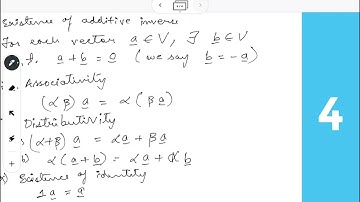 Existence of additive inverse
For each vector a ∈ V, ∃ b ∈ V
a + b = 0 (we say b = -a)
Associativity
(α β) a = α (β a)
Distributivity
(α+β) a = αa + βa
b) α (a + b) = αa + α b
Existence of identity
1 a = a
4